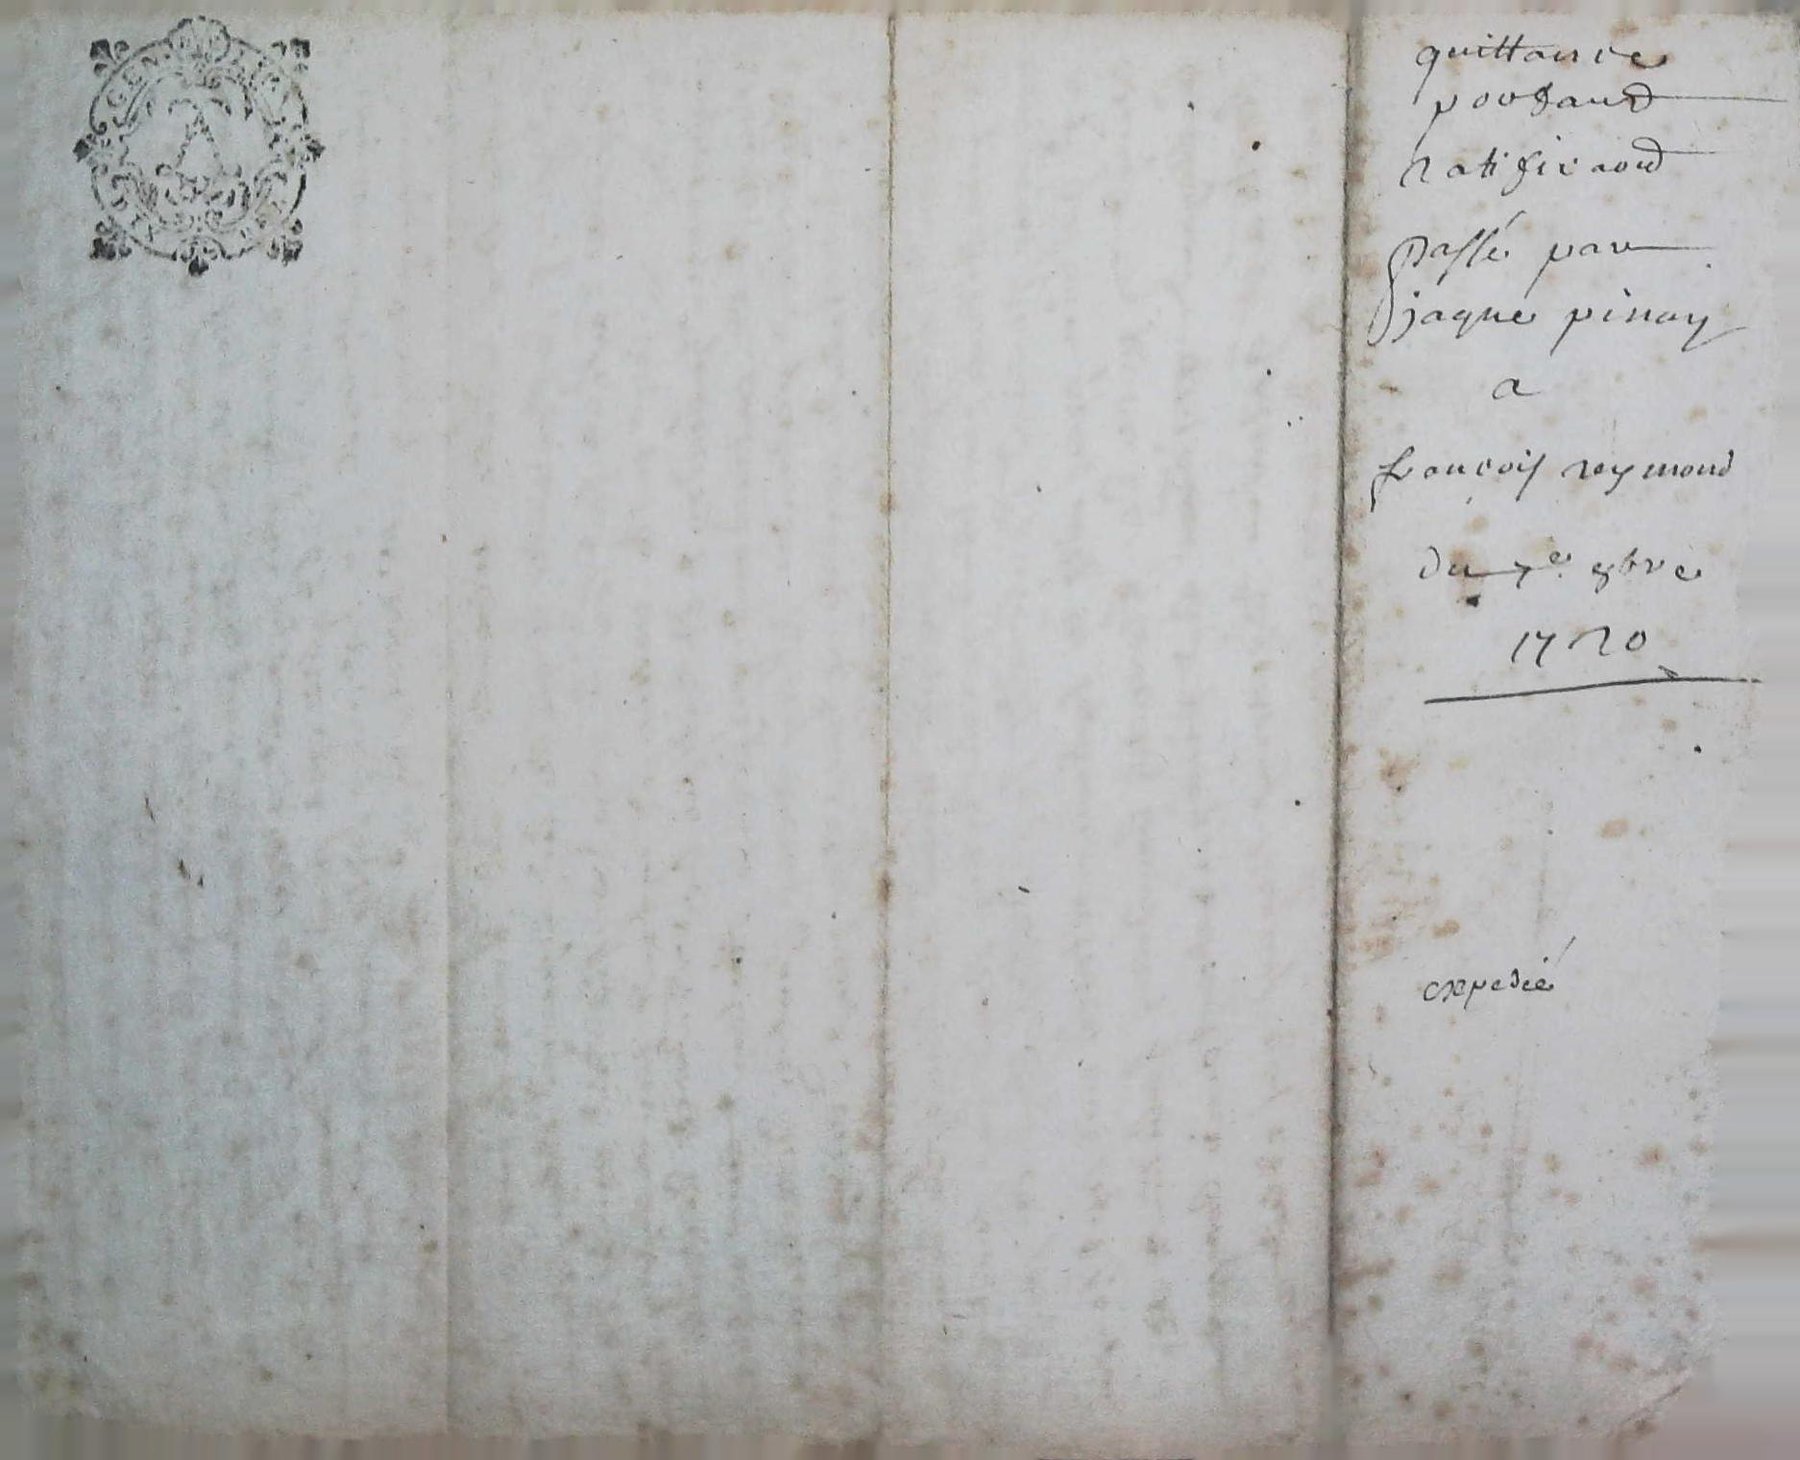 quittance
portand
ratificaond
passé par
jaque pinay
a
françois reymond
du 7e 9bre
1720
expedié